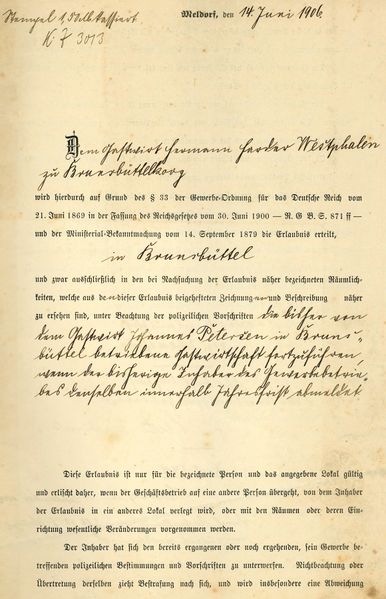 Stempel 1,50 M kassiert
K. J 3013
Meldorf, den 14. Juni 1906.
Dem Gastwirt Hermann Harder Westphalen
zu Brunsbüttelkoog
wird hierdurch auf Grund des § 33 der Gewerbe-Ordnung für das Deutsche Reich vom
21. Juni 1869 in der Fassung des Reichsgesetzes vom 30. Juni 1900 — R. G. B. S. 871 ff —
und der Ministerial-Bekanntmachung vom 14. September 1879 die Erlaubnis erteilt,
in Brunsbüttel
und zwar ausschließlich in den bei Nachsuchung der Erlaubnis näher bezeichneten Räumlich-
keiten, welche aus de n dieser Erlaubnis beigehefteten Zeichnung en und Beschreibung näher
zu ersehen sind, unter Beachtung der polizeilichen Vorschriften die bisher von
dem Gastwirt Johannes Petersen in Bruns-
büttel betriebene Gastwirtschaft fortzuführen,
wenn der bisherige Inhaber des Gewerbebetrie-
bes denselben innerhalb Jahresfrist abmeldet
Diese Erlaubnis ist nur für die bezeichnete Person und das angegebene Lokal gültig
und erlischt daher, wenn der Geschäftsbetrieb auf eine andere Person übergeht, von dem Inhaber
der Erlaubnis in ein anderes Lokal verlegt wird, oder mit den Räumen oder deren Ein-
richtung wesentliche Veränderungen vorgenommen werden.
Der Inhaber hat sich den bereits ergangenen oder noch ergehenden, sein Gewerbe be-
treffenden polizeilichen Bestimmungen und Vorschriften zu unterwerfen. Nichtbeachtung oder
Übertretung derselben zieht Bestrafung nach sich, und wird insbesondere eine Abweichung